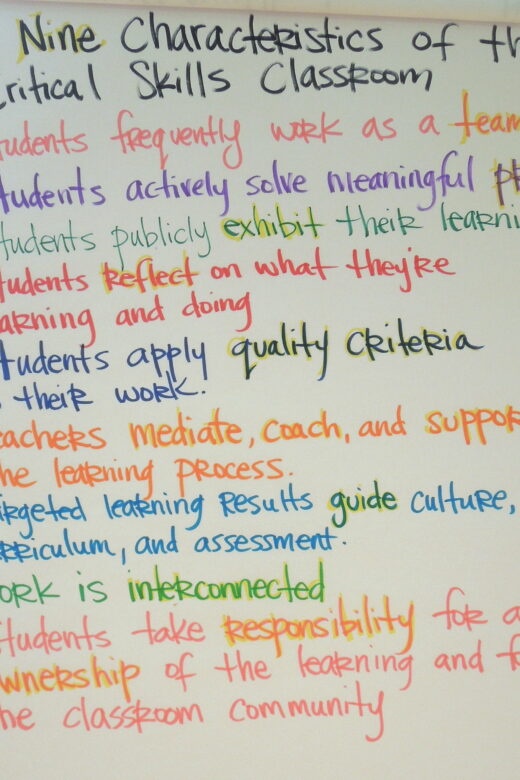 Nine Characteristics of th
ritical Skills Classroom
tudents frequently work as a team
tudents actively solve meaningful pr
tudents publicly exhibit their learni
tudents Reflect on what they're
arning and doing
tudents apply quality criteria
their work.
eachers mediate, coach, and suppor
he learning process.
rgeted learning Results guide culture,
rriculum, and assessment.
ork is interconnected
tudents take Responsibility for a
wnership of the learning and f
he classroom community